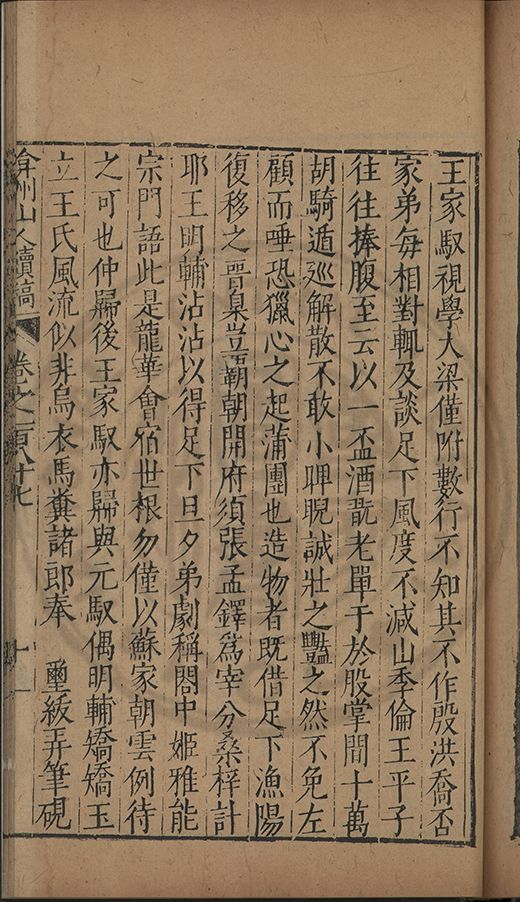 王家馭視學大梁僅附數行不知其不作殷洪喬否
家弟每相對輒及談足下風度不减山季倫王平子
往往捧腹至云以一盃酒翫老單于於股掌間十萬
胡騎遁巡解散不敢小睥睨誠壯之豔之然不免左
顧而唾恐獵心之起蒲團也造物者既借足下漁陽
復移之晉臬豈霸朝開府須張孟鐸爲宰分桑梓計
耶王明輔沾沾以得足下旦夕弟劇稱閤中姬雅能
宗門語此是龍華會宿世根勿僅以蘇家朝雲例待
之可也仲歸後王家馭亦歸與元馭偶明輔矯矯玉
立王氏風流似非烏衣馬糞諸郎奉 璽紱弄筆硯
弇州山人續稿 卷之一百八十七 十一